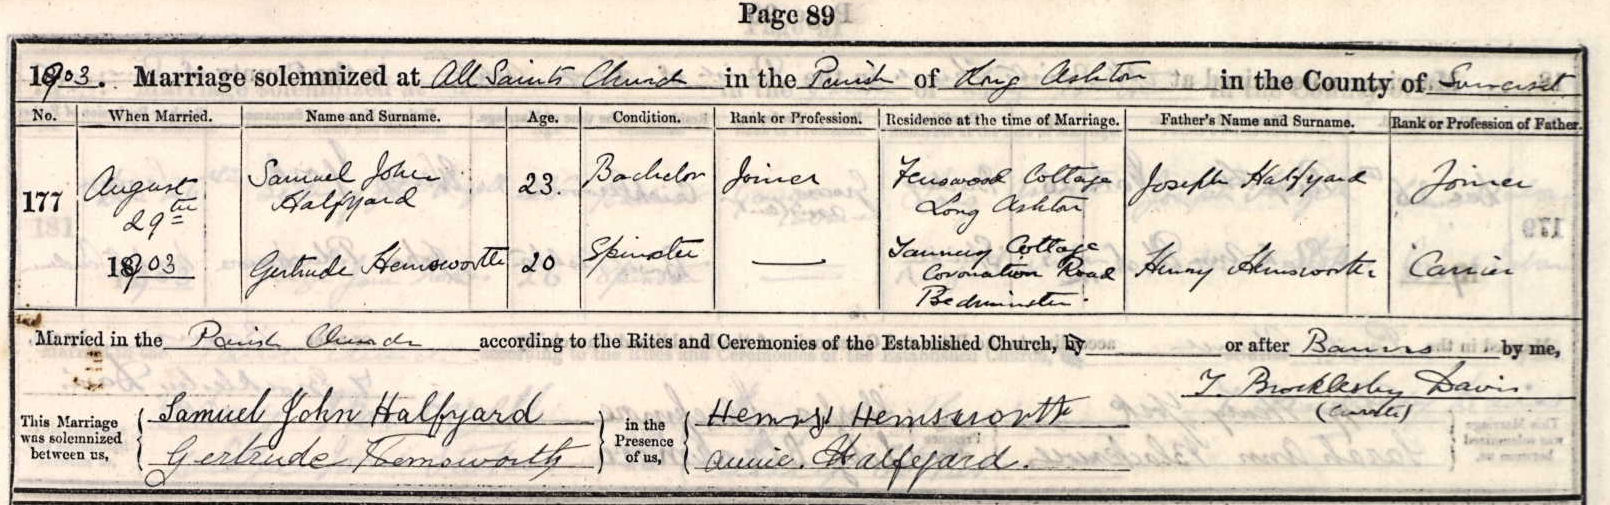 Page 89
1903. Marriage solemnized at All Saints Church in the Parish of Long Ashton in the County of Somerset
No. When Married. Name and Surname. Age. Condition. Rank or Profession. Residence at the time of Marriage. Father's Name and Surname. Rank or Profession of Father.
177 August 29th 1903
Samuel John Halfyard 23. Bachelor Joiner Fenswood Cottage Long Ashton Joseph Halfyard Joiner
Gertrude Hemsworth 20 Spinster — Tannery Cottage Coronation Road Bedminster. Henry Hemsworth Carrier
Married in the Parish Church according to the Rites and Ceremonies of the Established Church, by or after Banns by me,
T. Brocklesby Davis
(Curate)
This Marriage was solemnized between us, Samuel John Halfyard in the Presence of us, Henry Hemsworth
Gertrude Hemsworth Annie. Halfyard.